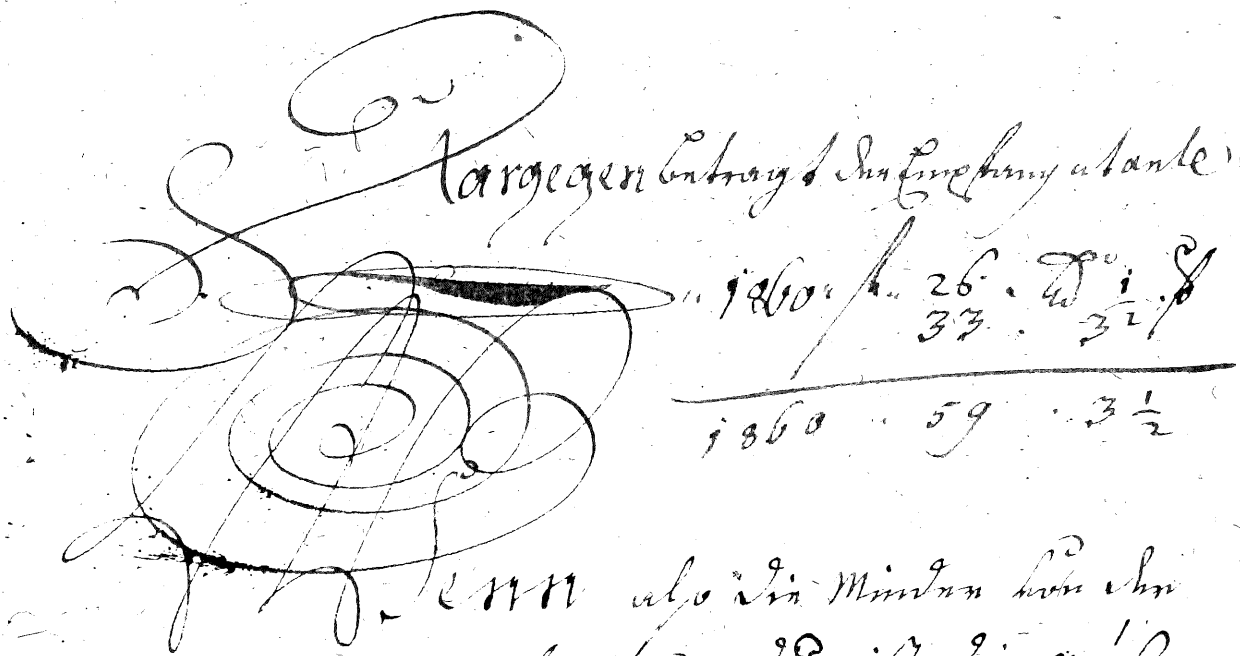 Dargegen betragt der Empfang utante
1860 fl 26
33 . 3½
1860 . 59 . 3 ½
Wenn also die Minder von der